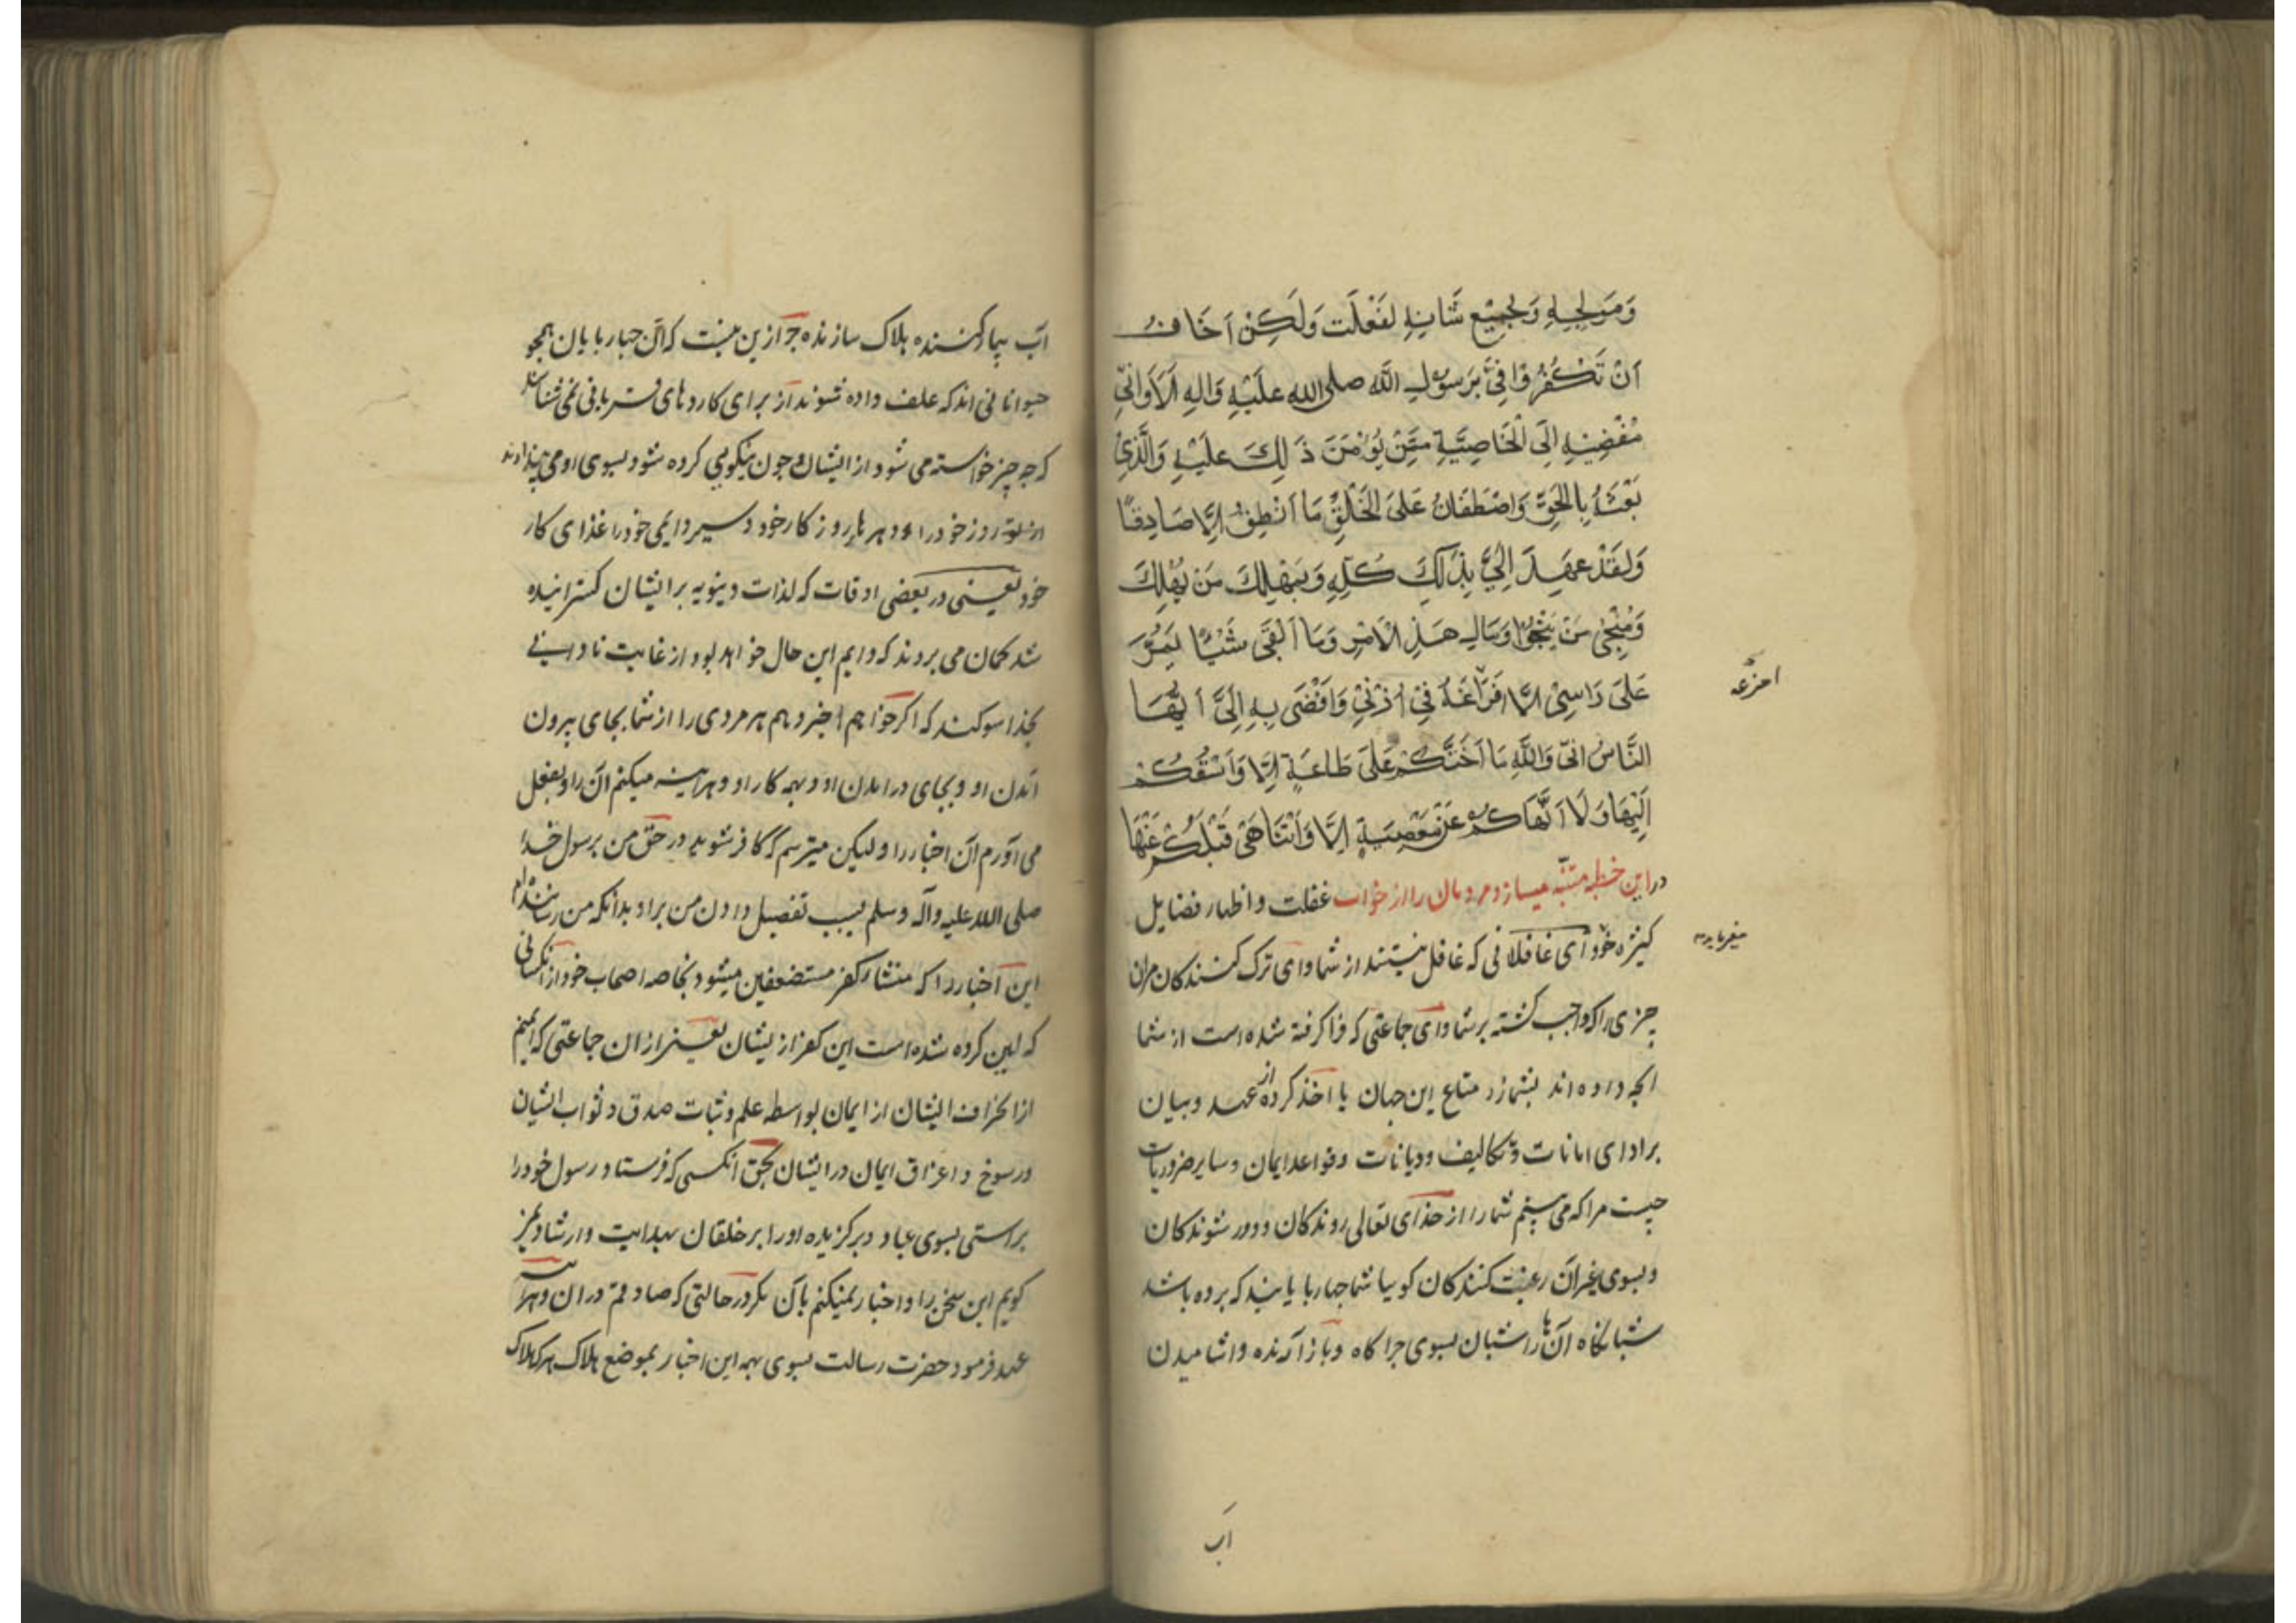 وَمَوْلِجِهِ وَبِجَمِيْعِ شَانِهِ لَفَعَلْت وَلَكِنْ اَخَافُ
اَنْ تَكْفُرُوْا فِيَّ بِرَسوْلِ اللَّه صلى الله عليْهِ وَالِهِ اَلَا وَاِنِّي
مُفْضِيْهِ اِلَى الْخَاصَّةِ مِمَّنْ يُؤْمَنَ ذَلِكَ عَلَيْهِ وَالَّذِيْ
بَعْثَهُ بِالْحَقِّ وَاصْطَفَاهُ عَلىَ الْخَلْقِ مَا اَنْطِقُ اِلَّا صَادِقًا
وَلَقَدْ عَهِدَ اِلَيَّ بِذَلِكَ كُلِّهِ وَبِمَهْلِكَ مَنْ يَهْلِكَ
وَمَنْجٰى مَنْ يَنْجُوْ وَمَالِ هَذِ الْاَمْرِ وَمَا اَبْقَى شَيْئًا يَمُرُّ
عَلىَ رَاسِىْ اِلَّا اَفْرَغَهُ فِيْ اُذْنَيْ وَاَفْضَى بِهِ اِلَيَّ اَيُّهَا
النَّاسُ انّى وَاللَّهِ مَا اَحَثُّكُمْ عَلىَ طَاعَةٍ اِلَّا وَاَسْبِقُكُمْ
اِلَيْهَا وَلَا اَنْهَاكُمْ عَنْ مَعْصِيَةٍ اِلَّا وَاَتَنَاهَى قَبْلَكُمْ عَنْهَا
در این خطبه متنبّه میسازد مردمان را از خواب غفلت و اظهار فضایل
کثیره خود ای غافلانی که غافل نیستند از شما و ای ترک کنندکان مران
چیزی را که واجب کشته بر شما و ای جماعتی که فرا کرفته شده است از شما
انچه داده اند بشما از متاع این جهان یا اخذ کرده از عهد و بیان
بر ادای امانات و تکالیف و دیانات و قواعد ایمان و سایر ضروریات
چیست مرا که می بینم شما را از خدای تعالی روندکان و دور شوندکان
و بسوی غیر آن رغبت کنندکان کویا شما چهارپایانید که برده باشد
شبانکاه آن ها را شبان بسوی چراکاه وبا ز آرنده و اشامیدن
میفرماید
اَب
اَب بیمار کننده هلاک سازنده جز ازین نیست که آن چهارپایان همچو
حیوانانی اند که علف داده شوند از برای کاردهای قربانی نمی شناسند
که چه چیز خواسته می شود از ایشان و چون نیکویی کرده شود بسوی او می پندارند
روز خود را دهر ها روز کار خود و سیر دایمی خود را غذای کار
خود یعنی در بعضی اوقات که لذات دنیویه بر ایشان کسترانیده
شد کمان می بردند که دایم این حال خواهد بود از غایت نادانی
بخدا سوکند که اکر خواهم اخبر دهم هر مردی را از شما بجای بیرون
آمدن او و بجای درامدن او و بهمه کار او و هر اینه میکنم آن را و بفعل
می آورم آن اخبار را و لیکن میترسم که کافر شوید در حق من برسول خدا
صلی الله علیه وآله وسلم بسبب تفضیل دادن من براو بدانکه من رساننده ام
این اخبار را که منشار کفر مستضعفین میشود بخاصه اصحاب خود از انکسانی
که ایمن کرده شده است این کفر از یشان یعنی از ان جماعتی که ایمنم
از انحراف ایشان از ایمان بواسطه علم و ثبات صدق و ثواب ایشان
و رسوخ و اعراق ایمان در ایشان بحق انکسی که فرستاد رسول خود را
براستی بسوی عباد و برکزیده او را بر خلقان بهدایت و ارشاد نمی
کویم این سخن را و اخبار نمیکنم بآن مکر در حالتی که صادقم در ان و هر اینه
عهد فرمود حضرت رسالت بسوی بهمه این اخبار بموضع هلاک هر که هلاک